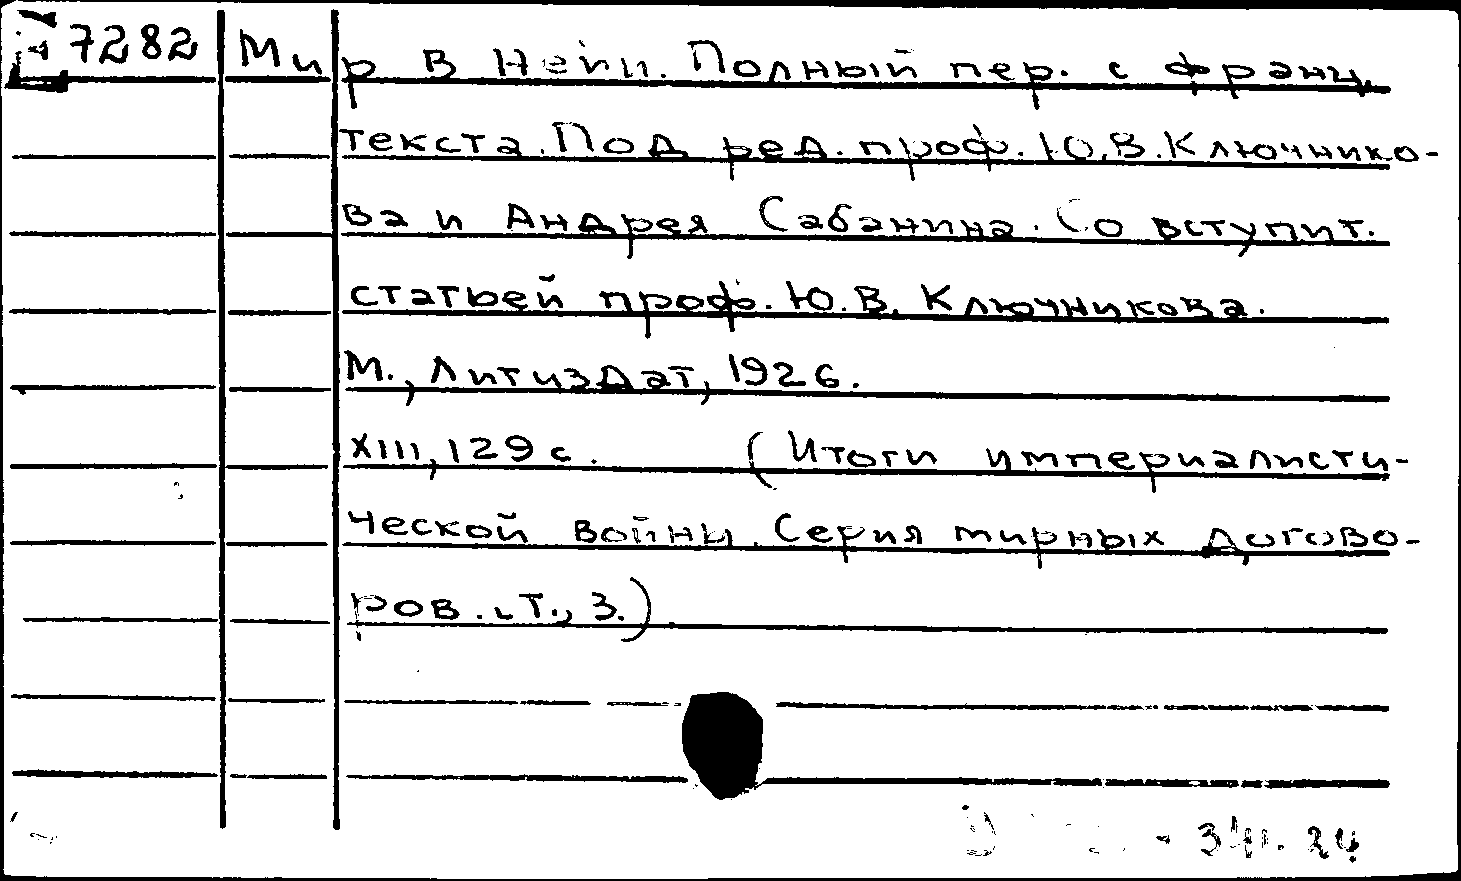 7282 Мир в Нейи. Полный пер. с франц.
текста. Под ред. проф. Ю.В. Ключнико-
ва и Андрея Сабанина. Со вступит.
статьей проф. Ю.В. Ключникова.
М., Литиздат, 1926.
XIII, 129 с. (Итоги империалисти-
ческой войны. Серия мирных догово-
ров. Т., 3.).